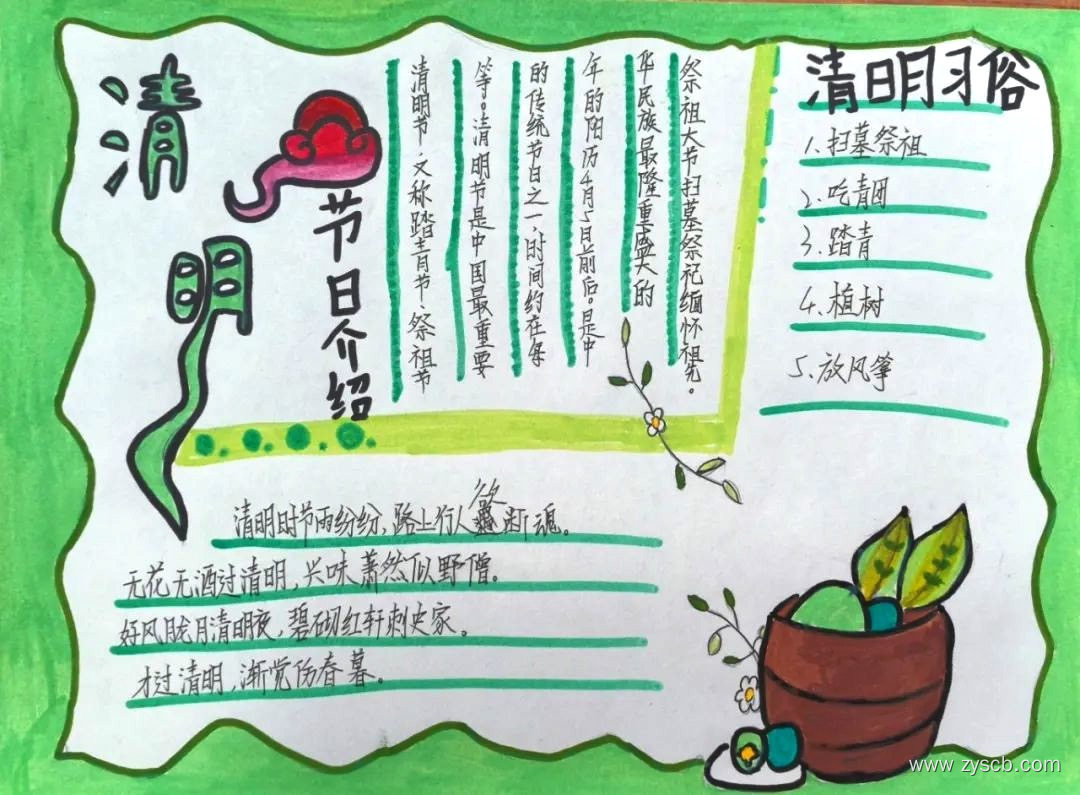 清
明
节日介绍
清明节·又称踏青节·祭祖节
等。清明节是中国最重要
的传统节日之一,时间约在每
年的阳历4月5日前后。是中
华民族最隆重盛大的
祭祖大节扫墓祭祀缅怀祖先。
清明习俗
1.扫墓祭祖
2.吃青团
3.踏青
4.植树
5.放风筝
清明时节雨纷纷,路上行人欲断魂。
无花无酒过清明,兴味萧然似野僧。
好风胧月清明夜,碧砌红轩刺史家。
才过清明,渐觉伤春暮。
www.zyscb.com